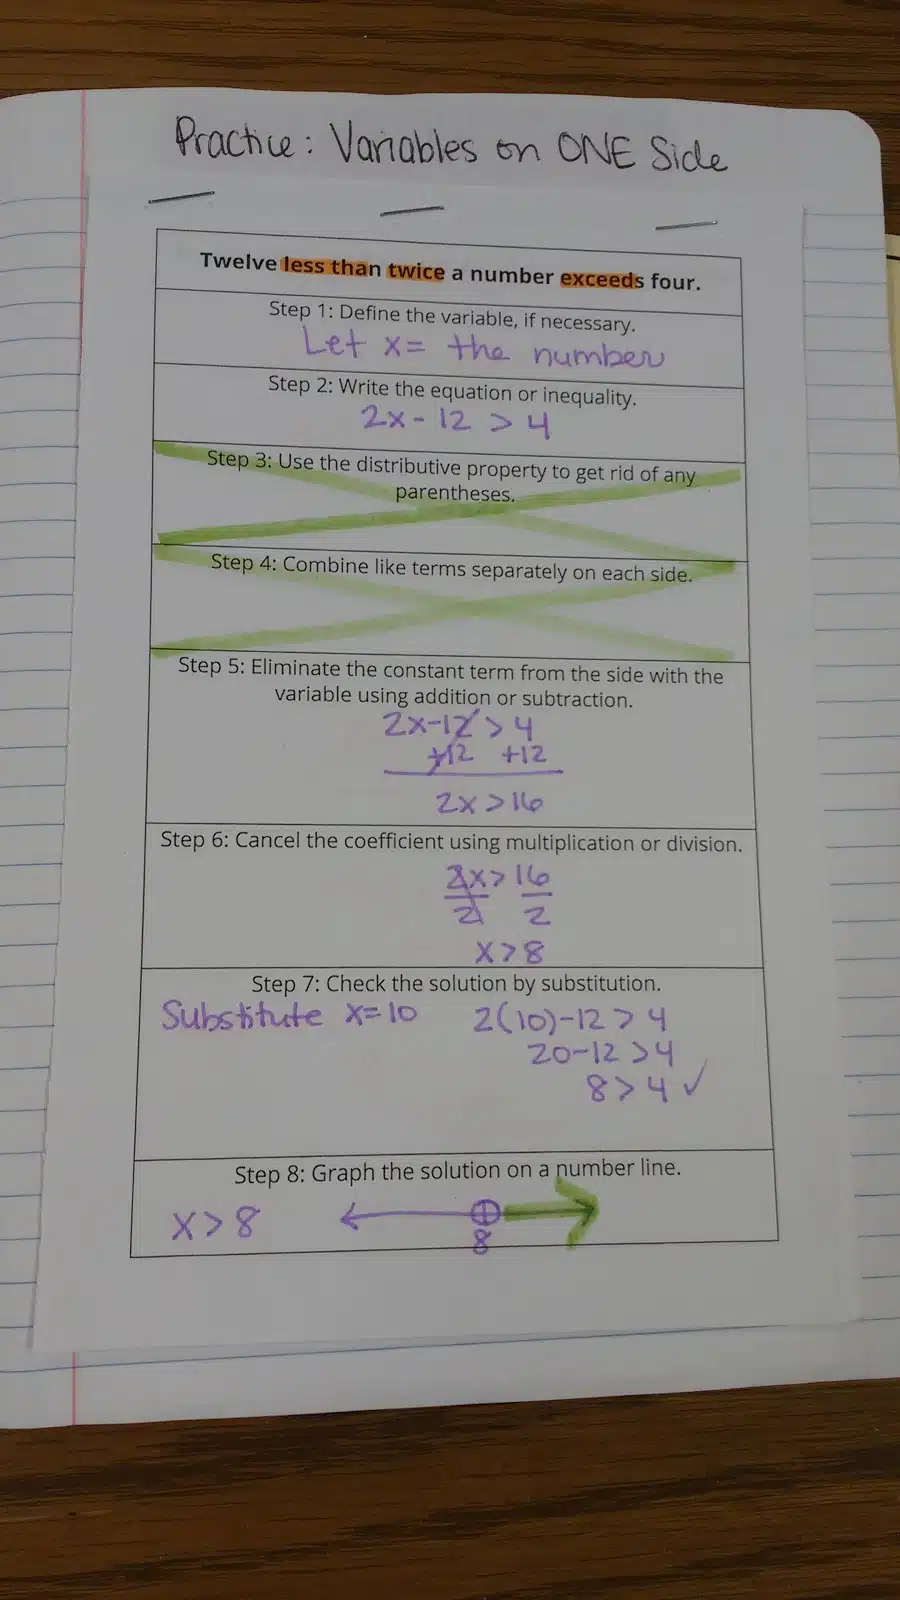 Practice: Variables on ONE Side
Twelve less than twice a number exceeds four.
Step 1: Define the variable, if necessary.
Let x= the number
Step 2: Write the equation or inequality.
2x - 12 > 4
Step 3: Use the distributive property to get rid of any
parentheses.
Step 4: Combine like terms separately on each side.
Step 5: Eliminate the constant term from the side with the
variable using addition or subtraction.
2x-12 > 4
+12 +12
2x > 16
Step 6: Cancel the coefficient using multiplication or division.
2x > 16
2 2
x > 8
Step 7: Check the solution by substitution.
Substitute x=10 2(10)-12 > 4
20-12 > 4
8 > 4 ✓
Step 8: Graph the solution on a number line.
x > 8
8